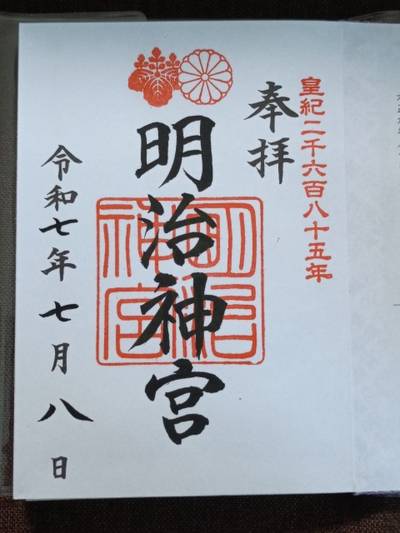 皇紀二千六百八十五年
奉拝
明治神宮
明治神宮
令和七年七月八日